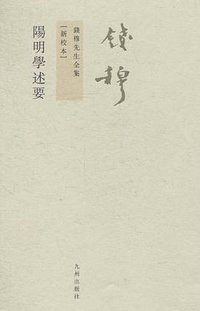 錢穆
錢穆先生全集
[新校本]
陽明學述要
九州出版社